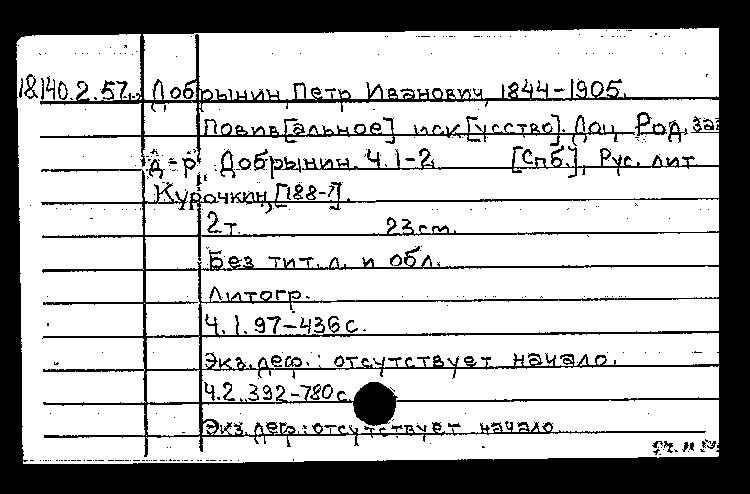 18.140.2.57. Добрынин, Петр Иванович, 1844-1905.
Повив[альное] иск[усство]. Доц. Род. зав
д-р. Добрынин. Ч.1-2. [Спб.], Рус. лит
Курочкин, [188-?].
2т. 23см.
Без тит.л. и обл.
Литогр.
Ч.1.97-436с.
Экз.деф.: отсутствует начало.
Ч.2.392-780с
Экз.деф.: отсутствует начало